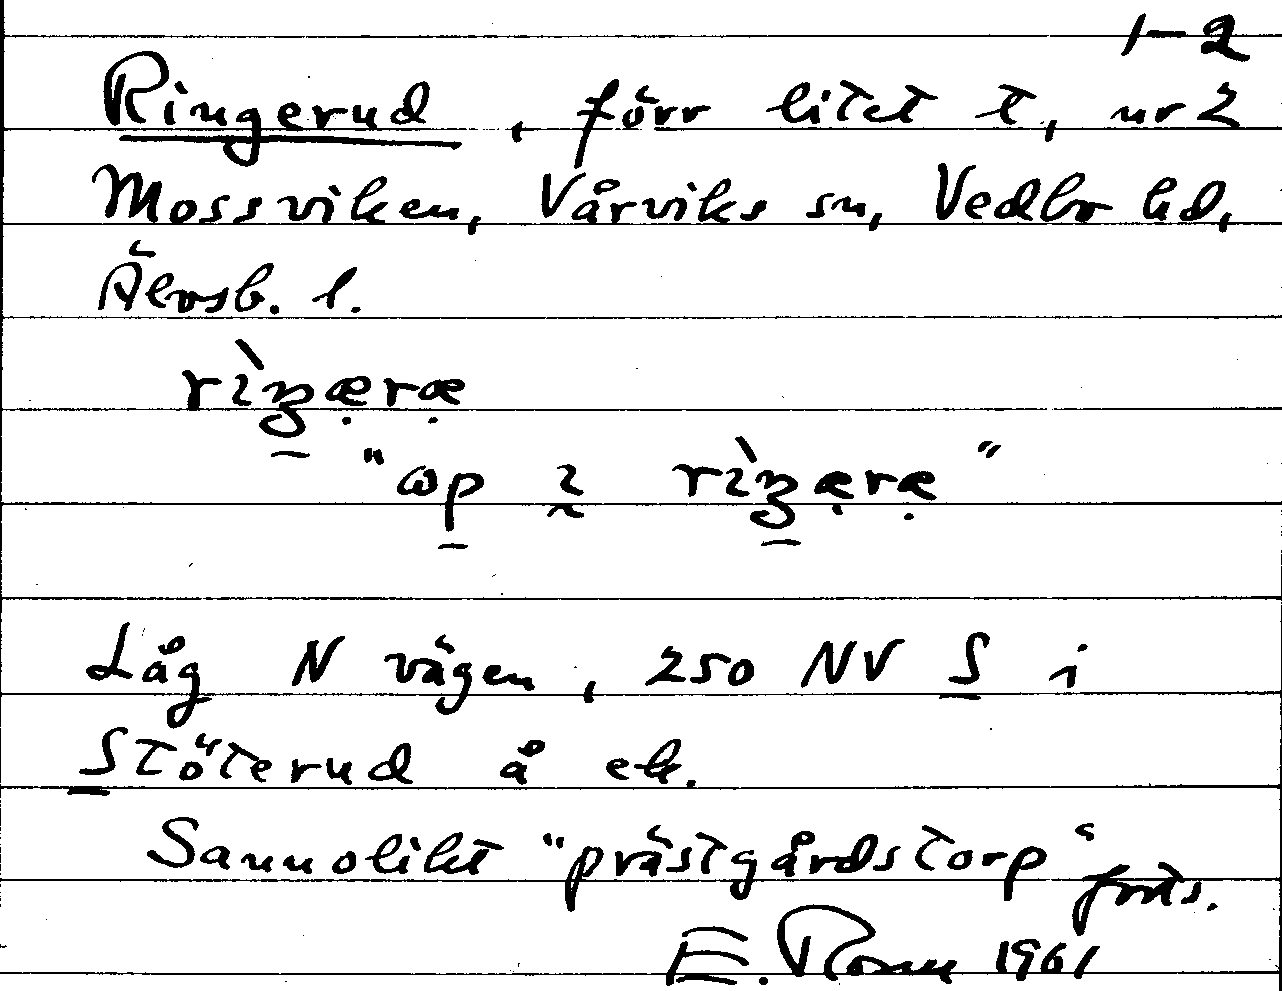 1-2
Ringerud, förr litet t, nr 2
Mossviken, Vårviks sn, Vedbo hd,
Älvsb. l.
rìŋæ̣ræ̣
"ωp ı rìŋæ̣ræ̣"
Låg N vägen, 250 NV S i
Stöterud å ek.
Sannolikt "prästgårdstorp"
forts.
E. 1961